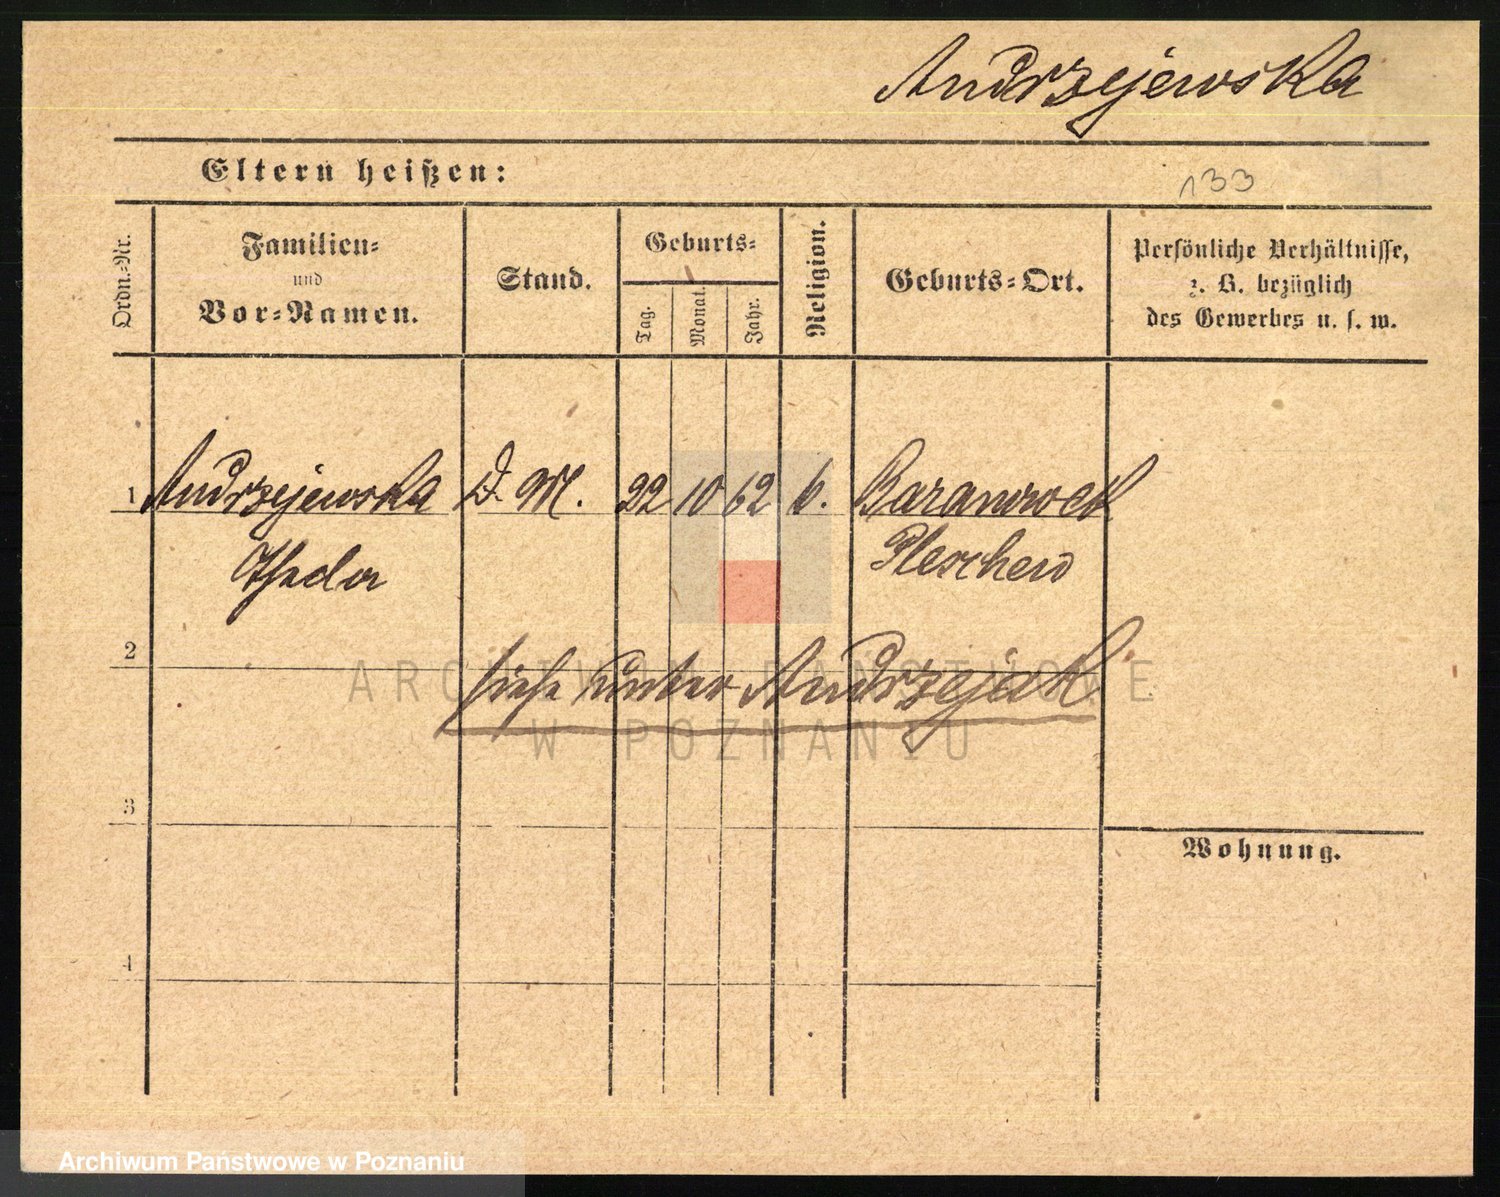 Andrzejewska
Eltern heißen:
133
Ordn.-Nr.
Familien-
und
Vor-Namen.
Stand.
Geburts-
Tag.
Monat.
Jahr.
Religion.
Geburts-Ort.
Persönliche Verhältnisse,
z. B. bezüglich
des Gewerbes u. s. w.
1 Andrzejewska D. M. 22 10 62 k. Baranowek
Theda Pleschen
2
siehe unter Andrzejak
ARCHIWUM PAŃSTWOWE
W POZNANIU
3
Wohnung.
4
Archiwum Państwowe w Poznaniu